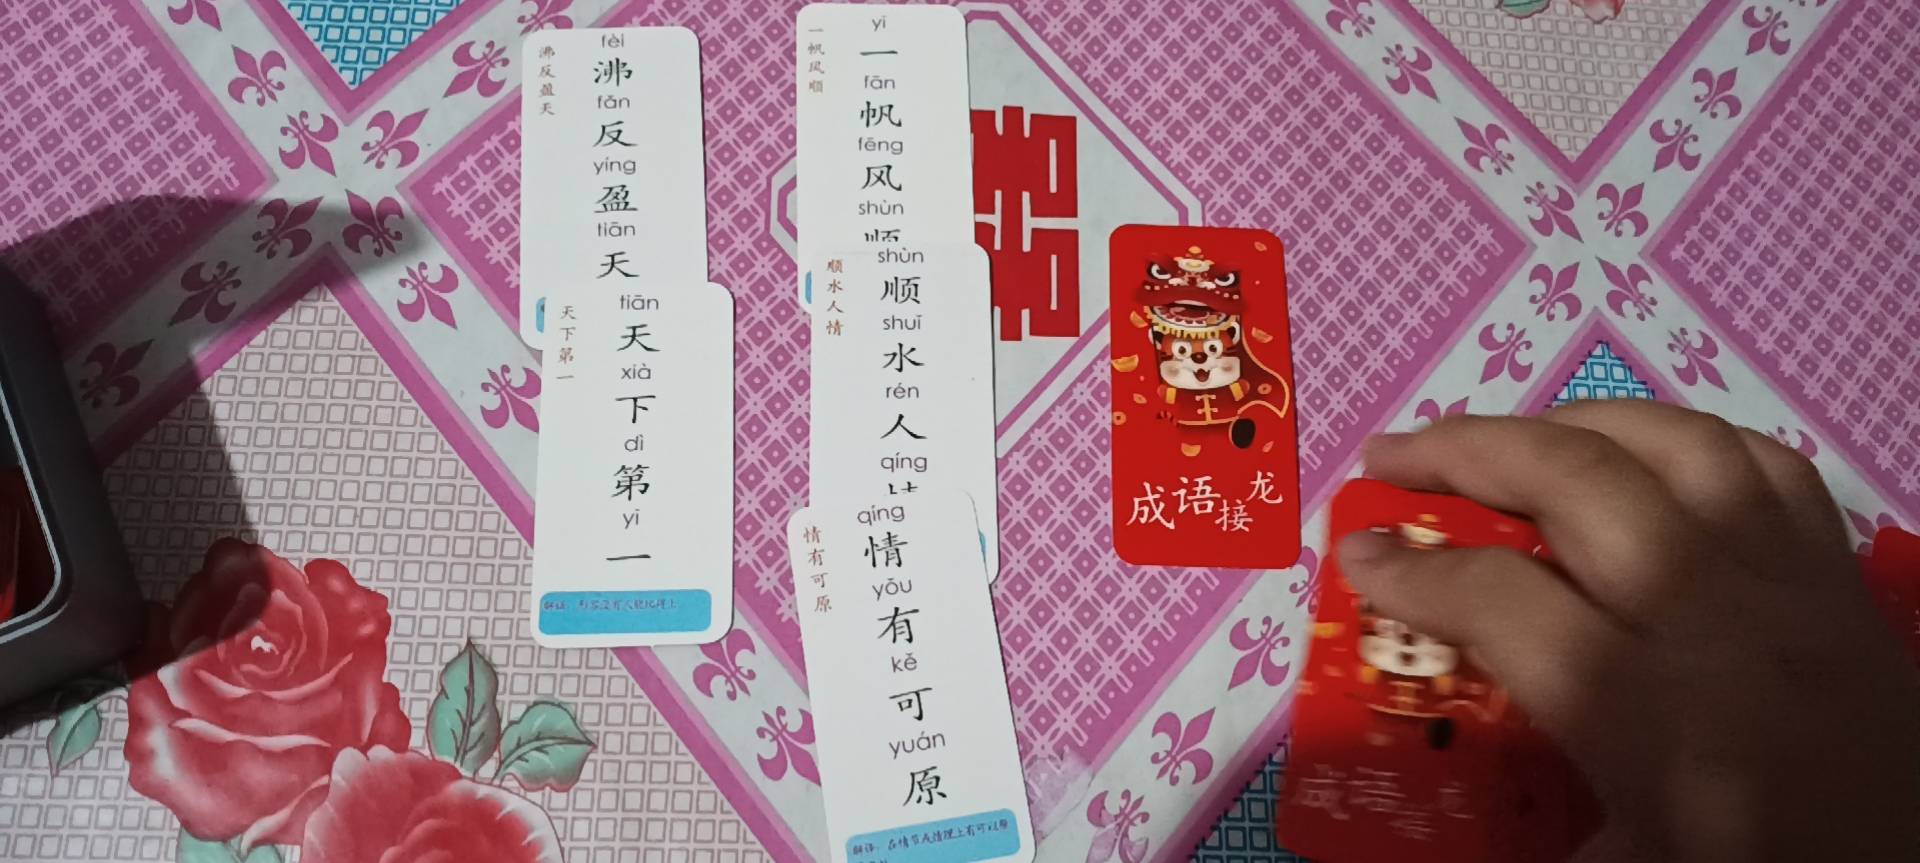 沸反盈天
fèi
沸
fǎn
反
yíng
盈
tiān
天
天下第一
tiān
天
xià
下
dì
第
yī
一
一帆风顺
yī
一
fān
帆
fēng
风
shùn
顺
顺水人情
shùn
顺
shuǐ
水
rén
人
qíng
情有可原
qíng
情
yǒu
有
kě
可
yuán
原
解译：在情节或情理上有可以原
成语接龙
王
成语接龙